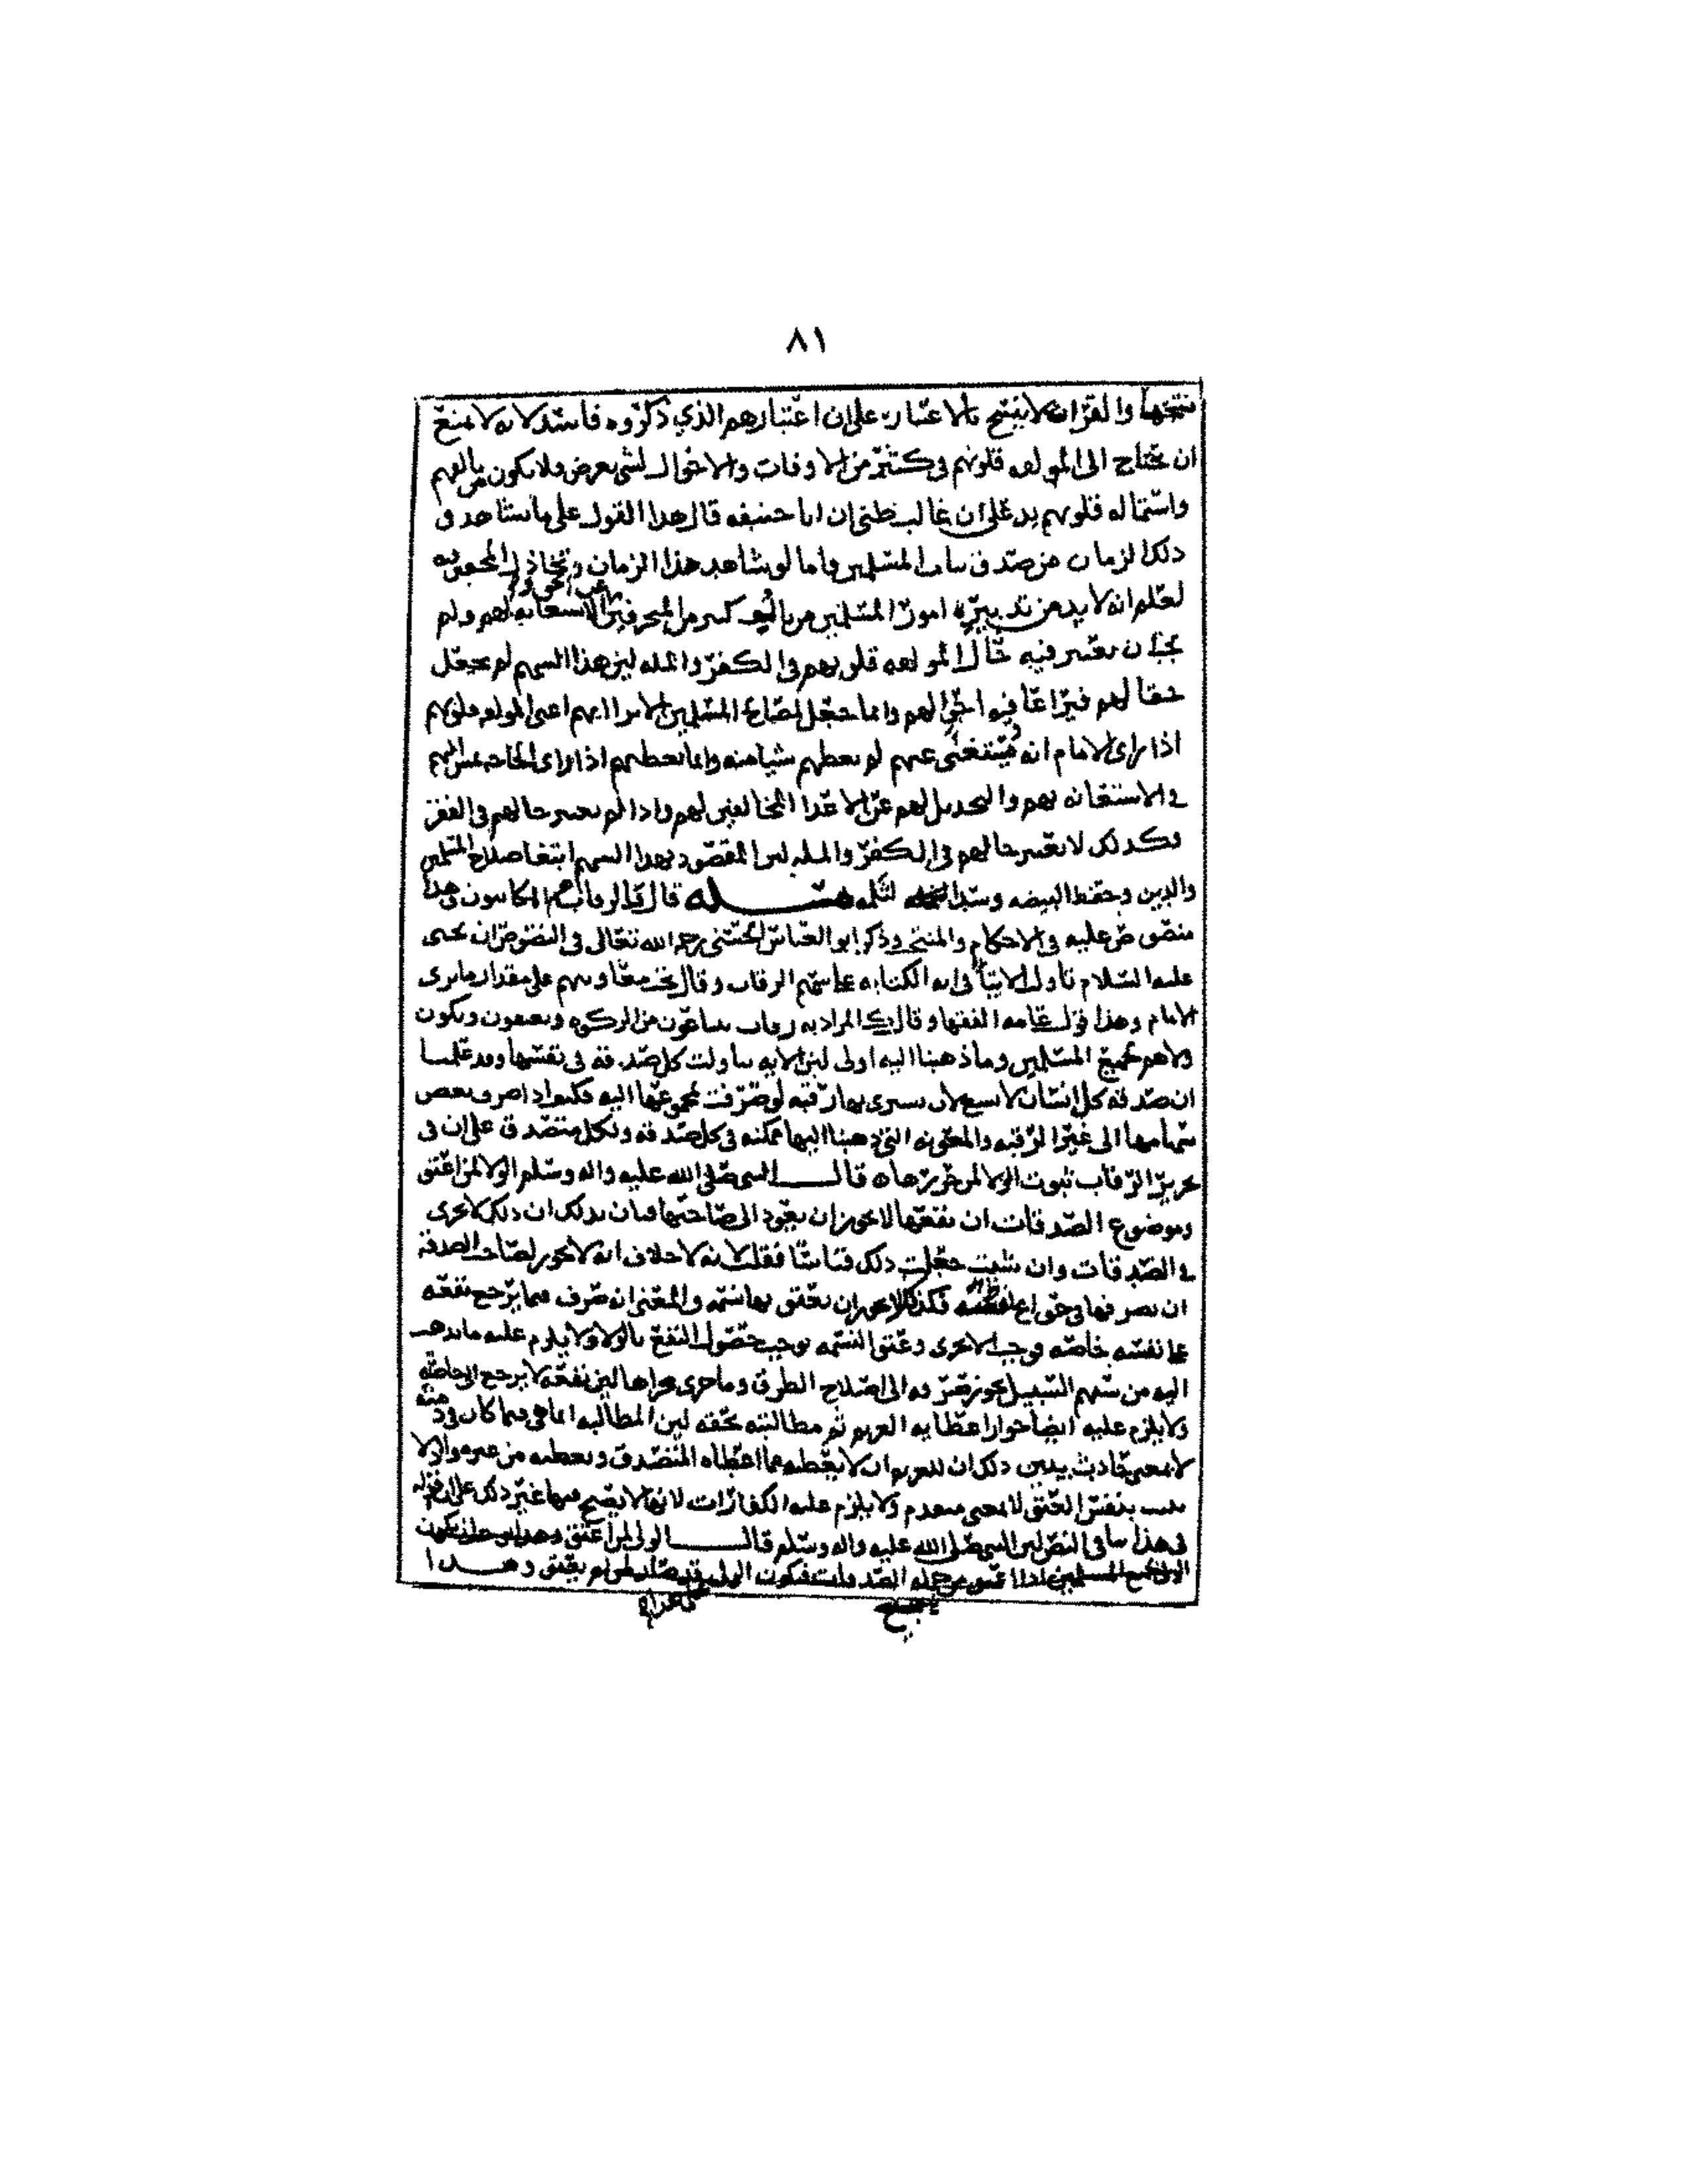 ٨١
والقران لا ينسخ بالاعتبار على ان اعتبارهم الذي ذكروه فاسد لانه لا يمنع
ان يحتاج الى المولفه قلوبهم في كثير من الاوقات والاحوال لشي يعرض ولا يكون من تالفهم
واستماله قلوبهم بد على ان غالب ظني ان ابا حنيفه قال هذا القول على ما شاهد في
ذلك الزمان من صدق المسلمين فاما لو شاهد هذا الزمان وتخاذل المحقين فيه
لعلم انه لا بد من تدبيره امور المسلمين من تاليف كثير من المنحرفين عن الحق والاستعانه بهم ولم
يجب ان يعتبر فيه حال المولفه قلوبهم في الكفر والمله لين هذا السهم لم يجعل
حقا لهم فيراعا فيه احوالهم وانما جعل لمصالح المسلمين الا ترا انهم اعني المولفه قلوبهم
اذا راى الامام انه مستغني عنهم لم يعطهم شيا منه وانما يعطيهم اذا راى الحاجه تمس اليهم
في الاستعانه بهم والتخذيل لهم عن الاعدا المخالفين لهم واذا لم يعتبر حالهم في الفقر
وكذلك لا يعتبر حالهم في الكفر والمله لين المقصود بهذا السهم ابتغا صلاح المسلمين
والدين وحفظ البيضه وسد الثلمه مسله قال والرقاب هم المكاتبون هذا
منصوص عليه في الاحكام والمنتخب وذكر ابو العباس الحسني رحمه الله تعالى في النصوص ان يحيى
عليه السلام تاول الايتا في ايه الكتابه على سهم الرقاب وقال يخص منها وسهم على مقدار ما يرى
الامام وهذا قول عامه الفقها وقال ك المراد به رقاب يبتاعون من الزكوه ويعتقون ويكون
ولاهم لجميع المسلمين وما ذهبنا اليه اولى لين الايه تناولت كل صدقه في نفسها وقد علمنا
ان صدقه كل انسان لا تتسع لان يشترى بها رقبه لو صرفت بمجموعها اليه فكيف اذا صرف بعض
سهامها الى غير الرقبه والمعونه التي ذهبنا اليها ممكنه في كل صدقه ولكل متصدق على ان في
تحرير الرقاب ثبوت الولا لمن حررها قال النبي صلى الله عليه واله وسلم الولا لمن اعتق
وموضوع الصدقات ان نفعها لا يجوز ان يعود الى صاحبها فبان بذلك ان ذلك لا يجزى
في الصدقات وان شيت جعلت ذلك قياسا فقلت لانه لا خلاف انه لا يجوز لصاحب الصدقه
ان يصرفها في حق فكذلك لا يجوز ان يعتق بها نسمه والمعنى انه صرف فيما يرجع نفعه
على نفسه خاصه فوجب الا يجزى وعتق النسمه يوجب حصول النفع بالولا ولا يلزم عليه ما يذهب
اليه من سهم السبيل يجوز صرفه الى اصلاح الطرق وما جرى مجراها لين نفعه لا يرجع الى خاصته
ولا يلزم عليه ايضا جواز اعطايه الغريم ثم مطالبته بحقه لين المطالبه انما هي فيما كان في ذمته
لا بمعنى حادث يبين ذلك ان للغريم ان لا يعطيه مما اعطاه المتصدق ويعطيه من غيره والولا
يثبت بنفس العتق لا بمعنى متقدم ولا يلزم عليه الكفارات لانها لا يصح فيها غير ذلك على ان قوله
في هذا ينافي النص لين النبي صلى الله عليه واله وسلم قال الولى لمن اعتق
الصدقات فيكون الولى لم يعتق وهذا